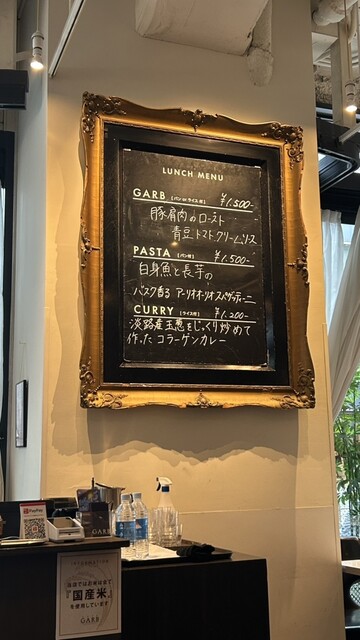 LUNCH MENU
GARB [パン or ライス付] ¥1.500-
豚肩肉のロースト
青豆トマトクリームソース
PASTA [パン付] ¥1.500-
白身魚と長芋の
バスク香る アーリオオーリオスパゲッティーニ
CURRY [ライス付] ¥1.200-
淡路産玉葱をじっくり炒めて
作った コラーゲンカレー
PayPay
GARB
INFORMATION
当店ではお米は全て
『国産米』
を使用しています
GARB